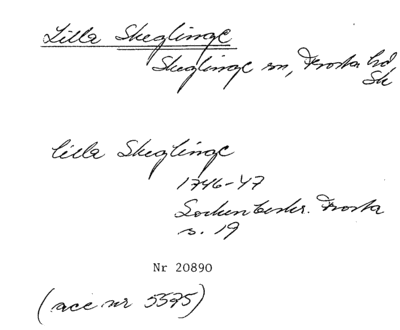 Lilla Skeglinge
Skeglinge sn, Frosta hd
Sk
Lilla Skeglinge
1746-47
Sockenbeskr. Frosta
s. 19
Nr 20890
(acc nr 5525)